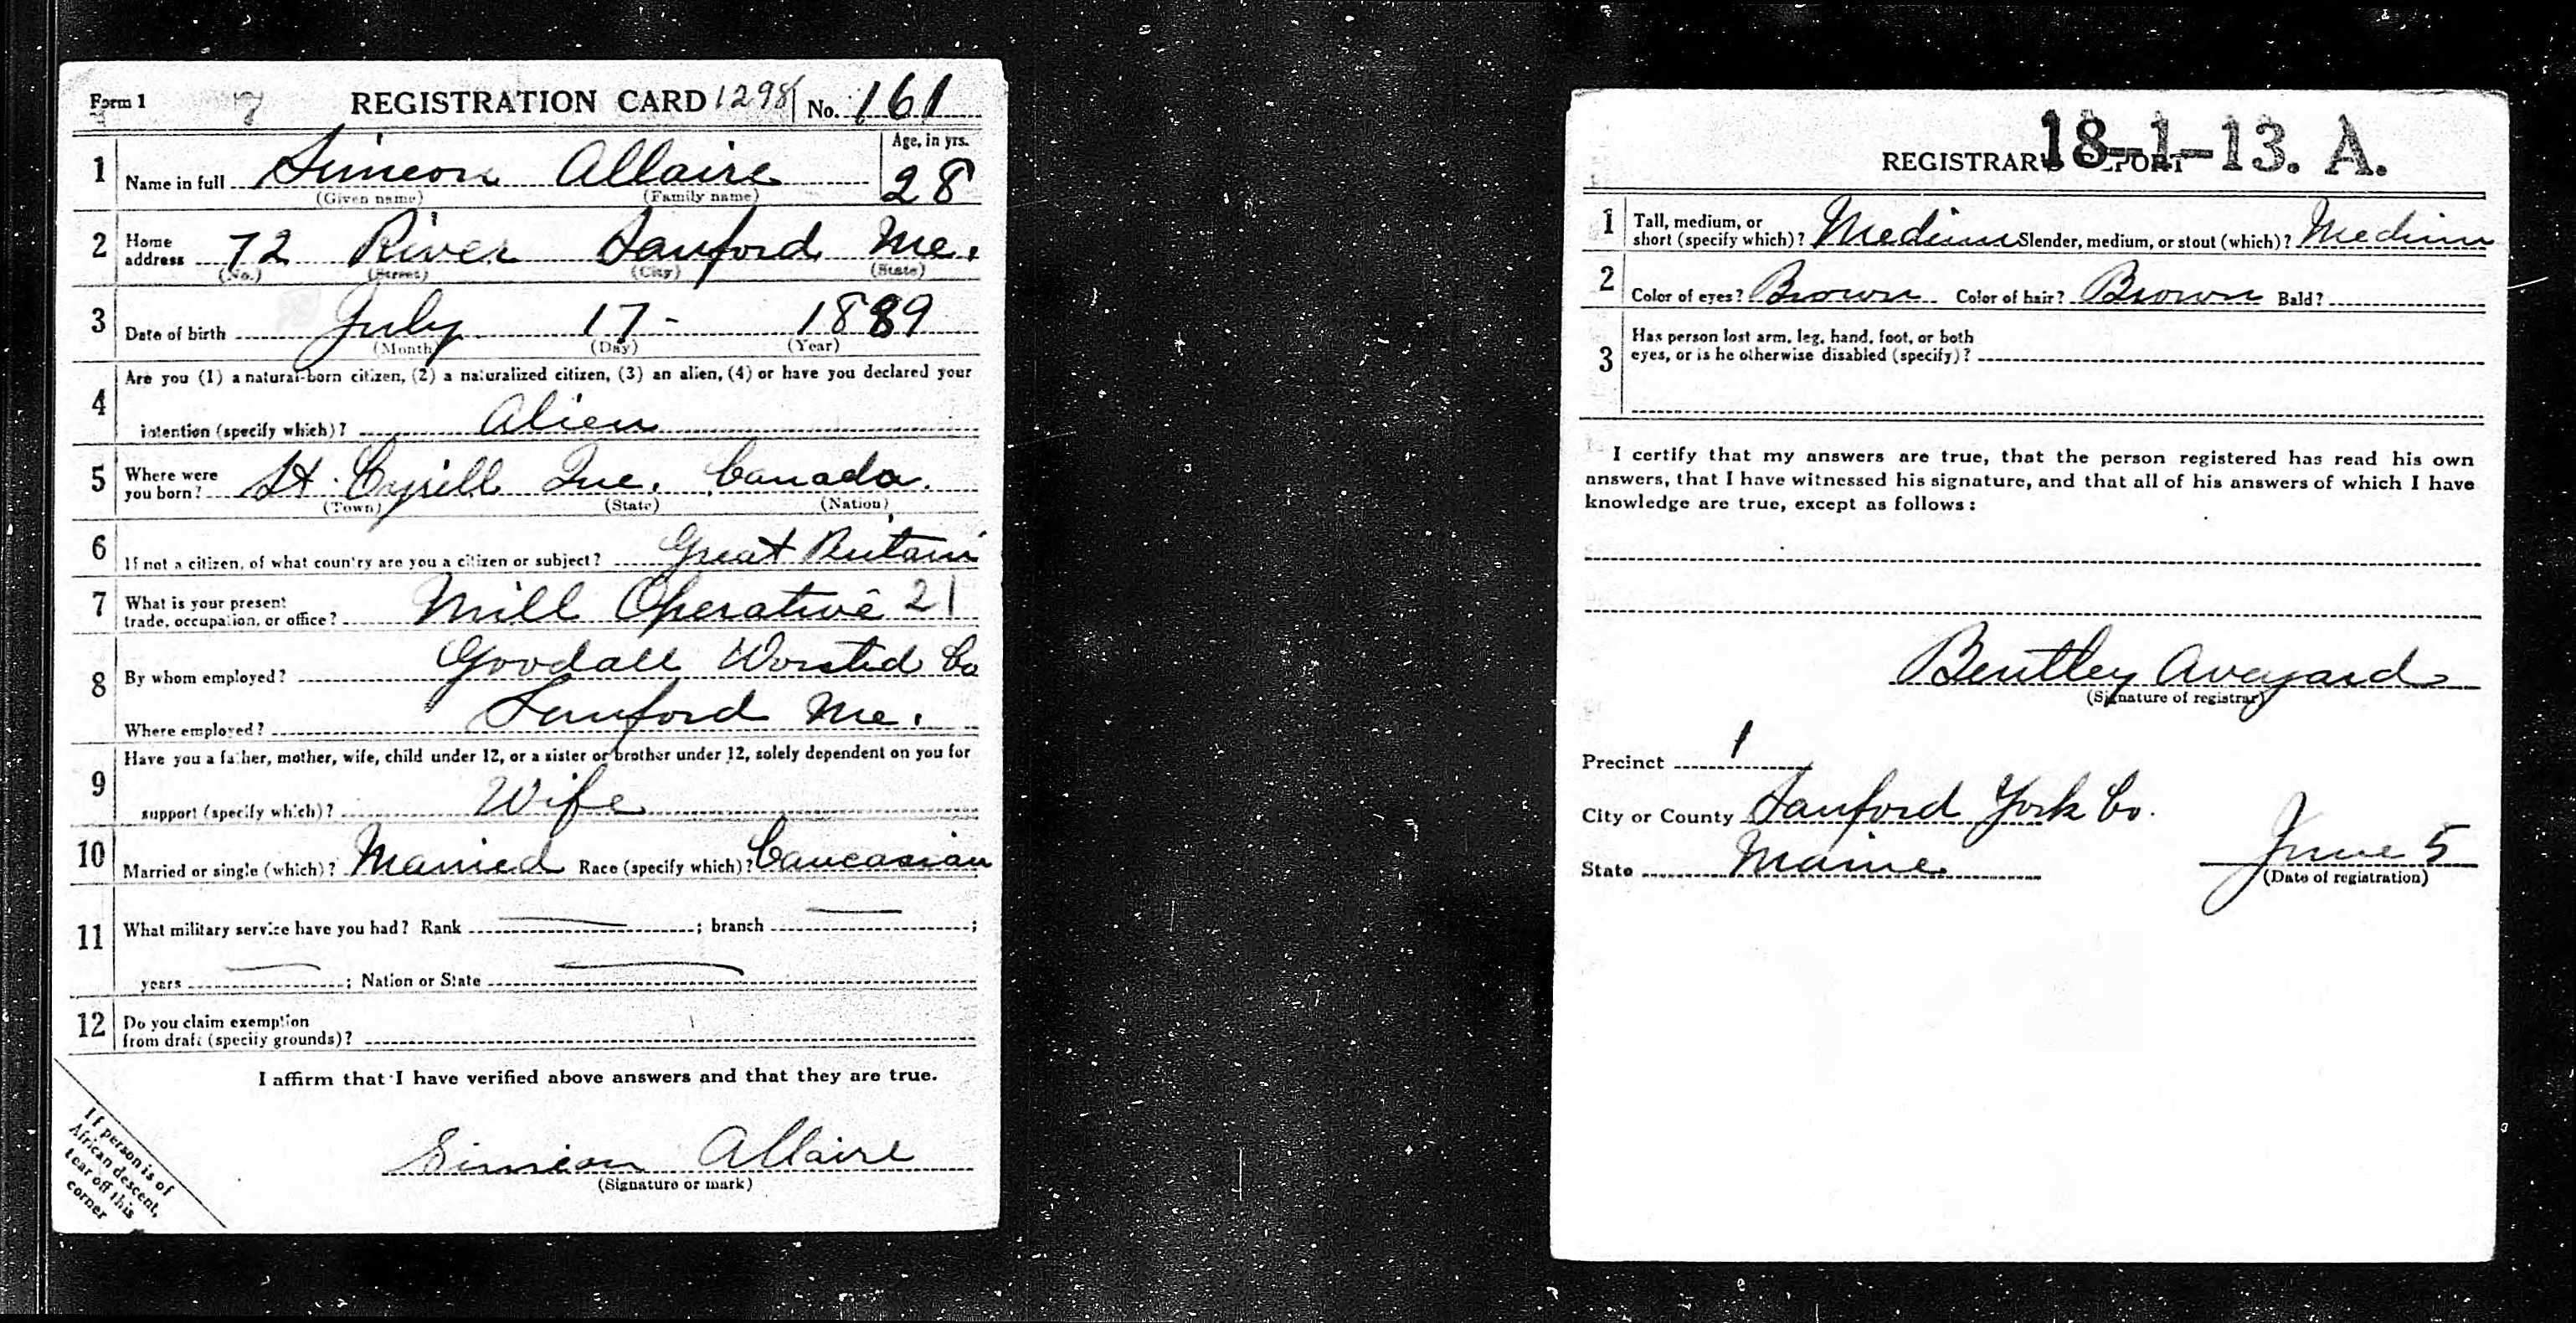 Form 1 7 REGISTRATION CARD 1298 No. 161
1 Name in full Simeon Allaire
(Given name) (Family name)
Age, in yrs.
28
2 Home address 72 River Sanford Me.
(No.) (Street) (City) (State)
3 Date of birth July 17- 1889
(Month) (Day) (Year)
4 Are you (1) a natural-born citizen, (2) a naturalized citizen, (3) an alien, (4) or have you declared your
intention (specify which)? Alien
5 Where were you born? St. Cyrill Que. Canada.
(Town) (State) (Nation)
6 If not a citizen, of what country are you a citizen or subject? Great Britain
7 What is your present trade, occupation, or office? Mill Operative 21
8 By whom employed? Goodall Worsted Co
Where employed? Sanford Me.
9 Have you a father, mother, wife, child under 12, or a sister or brother under 12, solely dependent on you for
support (specify which)? Wife
10 Married or single (which)? Married Race (specify which)? Caucasian
11 What military service have you had? Rank ; branch ;
years ; Nation or State
12 Do you claim exemption
from draft (specify grounds)?
I affirm that I have verified above answers and that they are true.
Simeon Allaire
(Signature or mark)
If person is of
African descent,
tear off this
corner
18-1-13. A.
REGISTRAR'S REPORT
1 Tall, medium, or
short (specify which)? Medium Slender, medium, or stout (which)? Medium
2 Color of eyes? Brown Color of hair? Brown Bald?
3 Has person lost arm, leg, hand, foot, or both
eyes, or is he otherwise disabled (specify)?
I certify that my answers are true, that the person registered has read his own
answers, that I have witnessed his signature, and that all of his answers of which I have
knowledge are true, except as follows:
Bentley Aveyard
(Signature of registrar)
Precinct 1
City or County Sanford York Co.
State Maine June 5
(Date of registration)